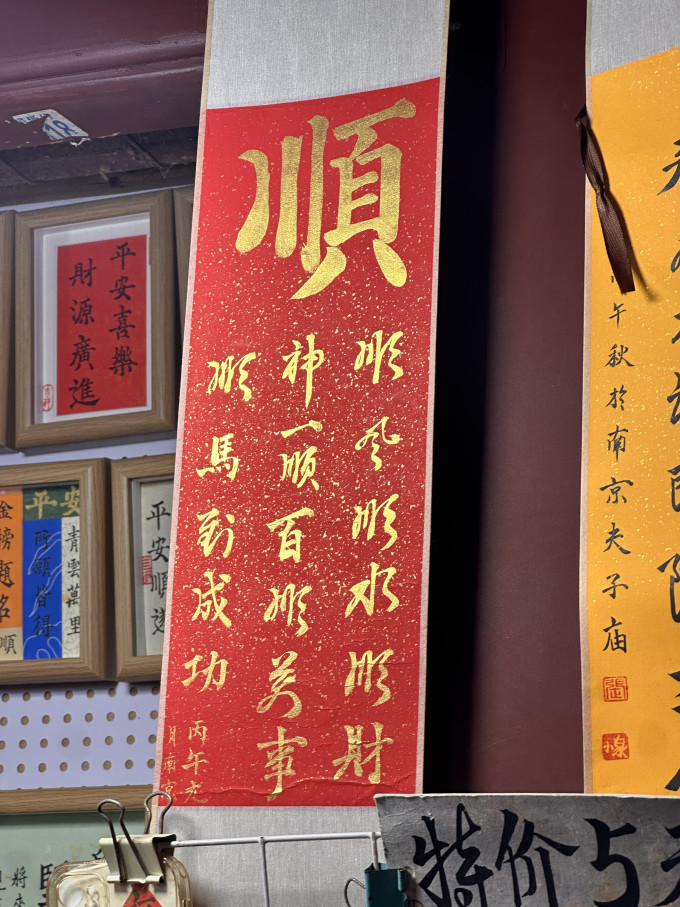 順
順风順水順財
神一順百順萬事
順馬到成功
丙午元
月南京
平安喜樂
財源廣進
吉祥
平安
青雲萬里
所願皆得
金榜題名
順
平安順遂
午秋於南京夫子庙
特价5
將來
18